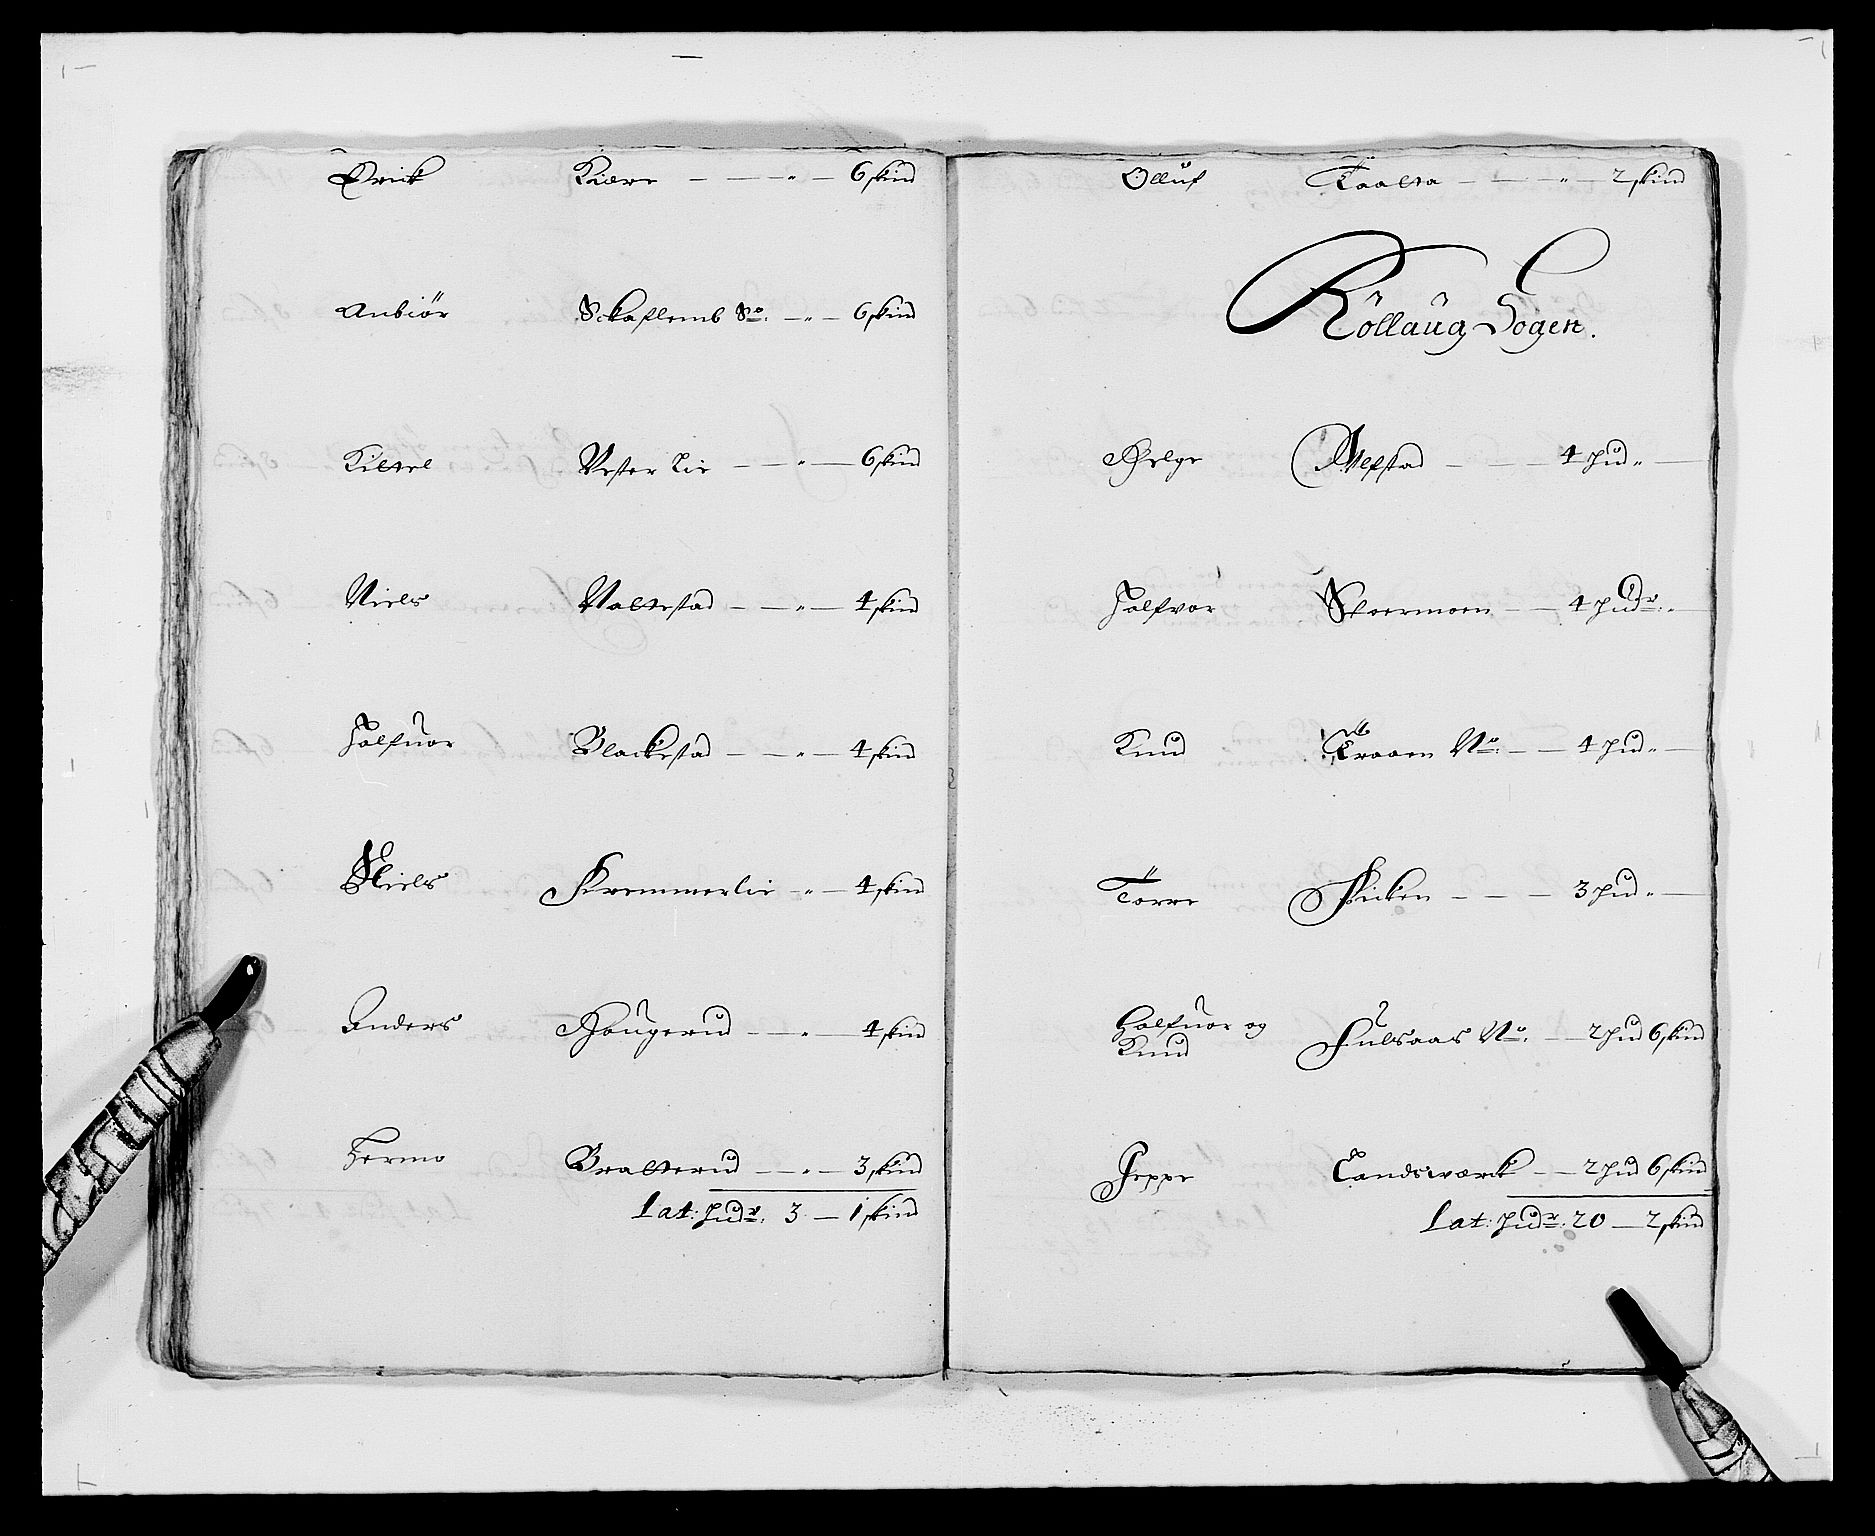 Erick Kiære — — „ — 6 skind
Anbiör Sckaflemb So: — „ — 6 skind
Kittel Vester Lie — — „ — 6 skind
Niels Valtestad — — „ — 4 skind
Halfuor Blackestad — — „ — 4 skind
Niels Kremmerlie — „ — 4 skind
Anders Hougerud — — „ 4 skind
Hermo Bratterud — „ — 3 skind
Lat: hudr: 3 — 1 skind
Olluf Taalta — — „ — 2 skind
Röllaug Sogen.
Helge Alfstad — — — 4 hud „ —
Halfvor Stoermoen — — 4 hudr: „
Knud Traaen No: — — 4 hud „ —
Torre — — — 3 hud „ —
Halfuor og
Knud Fulsaas No: — 2 hud 6 skind
Jeppe Landsværck — — 2 hud 6 skind
Lat: hudr: 20 — 2 skind